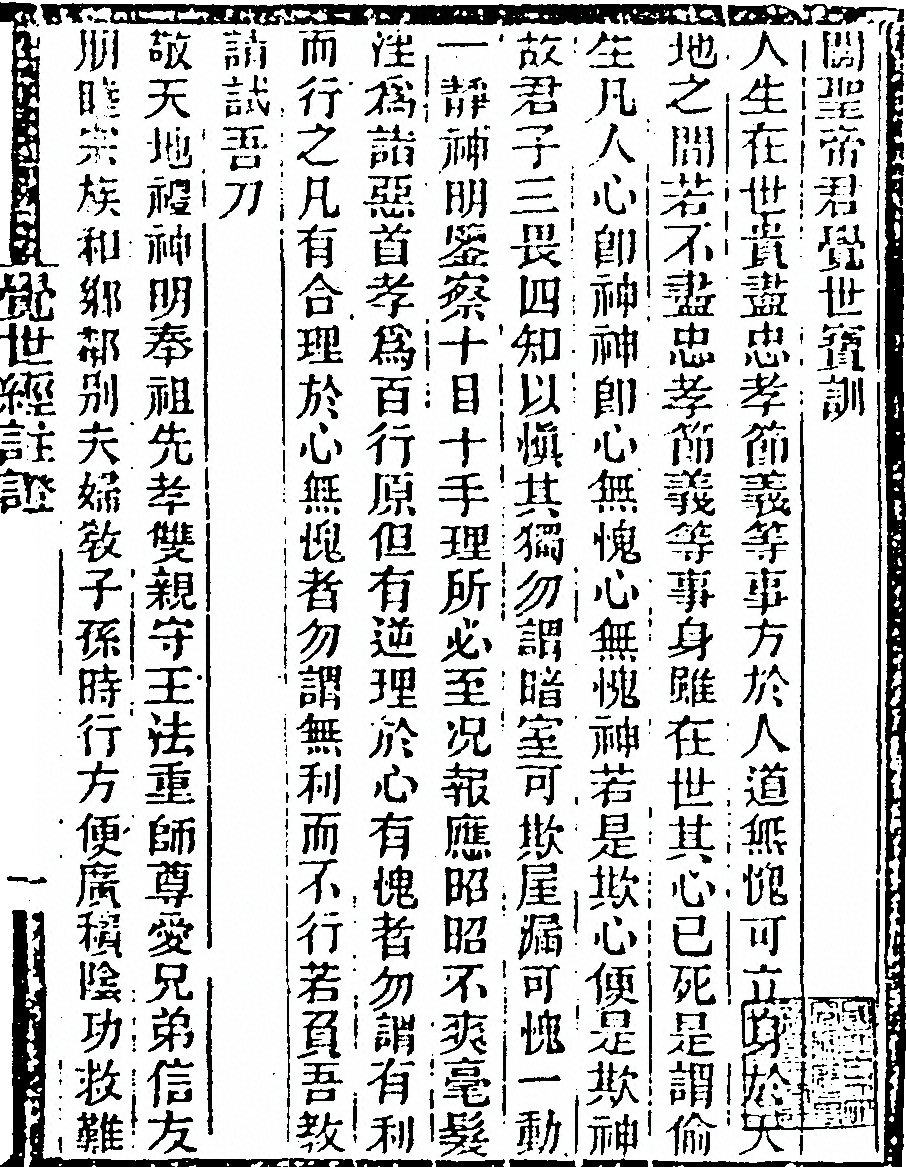 關聖帝君覺世寶訓
人生在世貴盡忠孝節義等事方於人道無愧可立身於天
地之間若不盡忠孝節義等事身雖在世其心已死是謂偷
生凡人心卽神神卽心無愧心無愧神若是欺心便是欺神
故君子三畏四知以愼其獨勿謂暗室可欺屋漏可愧一動
一靜神明鑒察十目十手理所必至况報應昭昭不爽毫髮
淫爲諸惡首孝爲百行原但有逆理於心有愧者勿謂有利
而行之凡有合理於心無愧者勿謂無利而不行若負吾教
請試吾刀
敬天地禮神明奉祖先孝雙親守王法重師尊愛兄弟信友
朋睦宗族和鄉鄰別夫婦敎子孫時行方便廣積陰功救難
覺世經註證
一